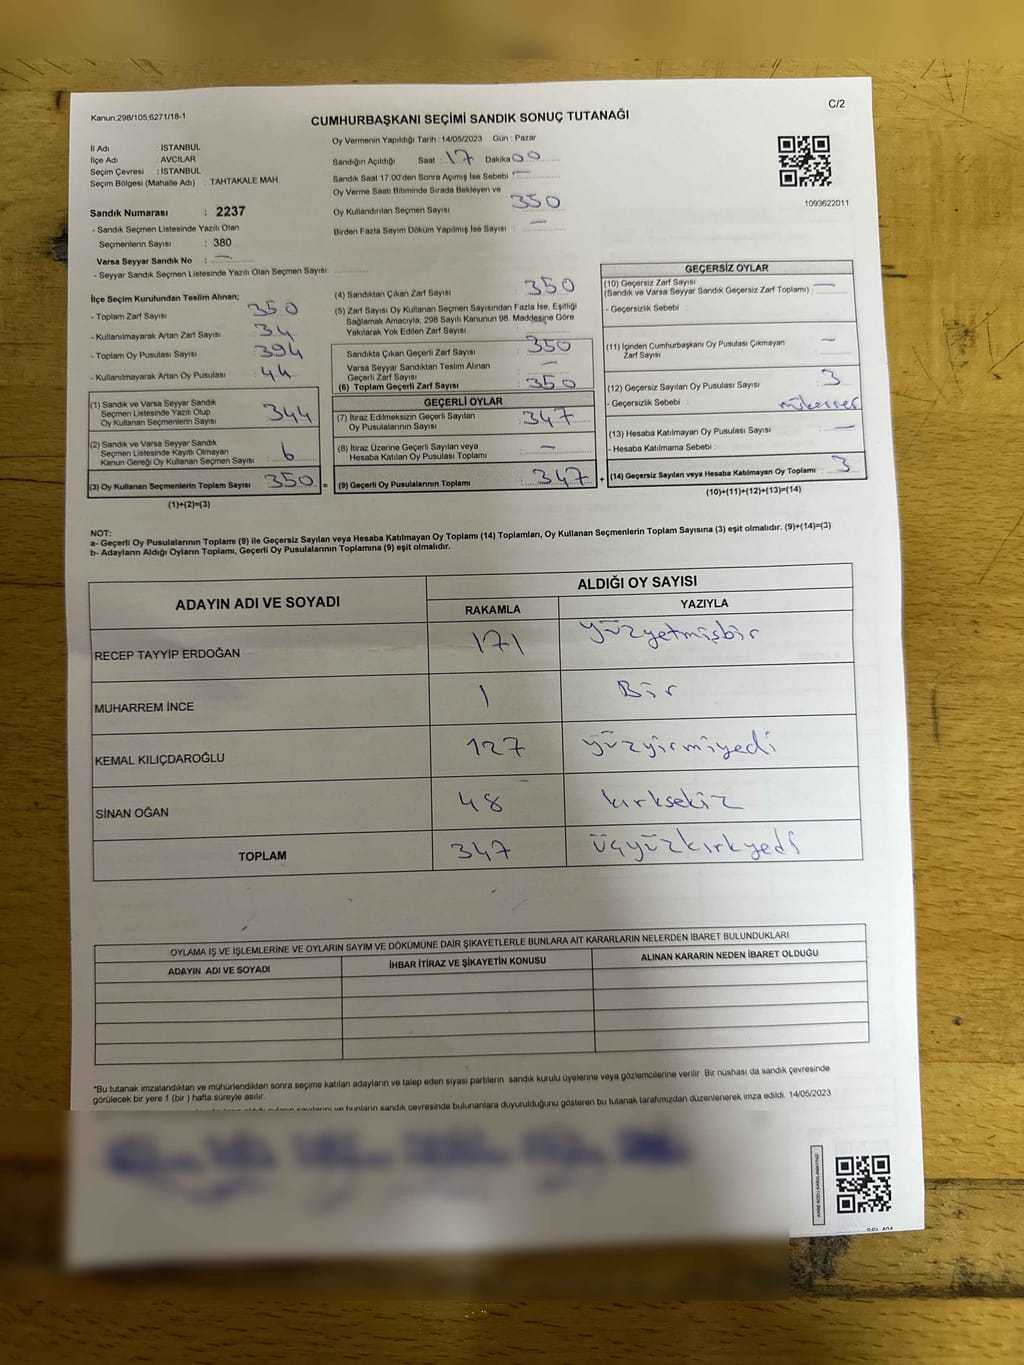 Kanun,298/105,6271/18-1
C/2
CUMHURBAŞKANI SEÇİMİ SANDIK SONUÇ TUTANAĞI
İl Adı : İSTANBUL
İlçe Adı : AVCILAR
Seçim Çevresi : İSTANBUL
Seçim Bölgesi (Mahalle Adı) : TAHTAKALE MAH.
Sandık Numarası : 2237
- Sandık Seçmen Listesinde Yazılı Olan
Seçmenlerin Sayısı : 380
Varsa Seyyar Sandık No : —
- Seyyar Sandık Seçmen Listesinde Yazılı Olan Seçmen Sayısı:
Oy Vermenin Yapıldığı Tarih : 14/05/2023 Gün : Pazar
Sandığın Açıldığı Saat : 17 Dakika 00
Sandık Saat 17.00'den Sonra Açımış İse Sebebi : —
Oy Verme Saati Bitiminde Sırada Bekleyen ve
Oy Kullandırılan Seçmen Sayısı 350
Birden Fazla Sayım Döküm Yapılmış İse Sayısı : —
1093622011
İlçe Seçim Kurulundan Teslim Alınan;
- Toplam Zarf Sayısı : 350
- Kullanılmayarak Artan Zarf Sayısı : 34
- Toplam Oy Pusulası Sayısı : 394
- Kullanılmayarak Artan Oy Pusulası : 44
(1) Sandık ve Varsa Seyyar Sandık
Seçmen Listesinde Yazılı Olup
Oy Kullanan Seçmenlerin Sayısı : 344
(2) Sandık ve Varsa Seyyar Sandık
Seçmen Listesinde Kayıtlı Olmayan
Kanun Gereği Oy Kullanan Seçmen Sayısı : 6
(3) Oy Kullanan Seçmenlerin Toplam Sayısı : 350 =
(1)+(2)=(3)
(4) Sandıktan Çıkan Zarf Sayısı : 350
(5) Zarf Sayısı Oy Kullanan Seçmen Sayısından Fazla İse, Eşitliği
Sağlamak Amacıyla, 298 Sayılı Kanunun 98. Maddesine Göre
Yakılarak Yok Edilen Zarf Sayısı :
Sandıkta Çıkan Geçerli Zarf Sayısı : 350
Varsa Seyyar Sandıktan Teslim Alınan
Geçerli Zarf Sayısı : —
(6) Toplam Geçerli Zarf Sayısı : 350
GEÇERLİ OYLAR
(7) İtiraz Edilmeksizin Geçerli Sayılan
Oy Pusulalarının Sayısı : 347
(8) İtiraz Üzerine Geçerli Sayılan veya
Hesaba Katılan Oy Pusulası Toplamı : —
(9) Geçerli Oy Pusulalarının Toplamı : 347 +
GEÇERSİZ OYLAR
(10) Geçersiz Zarf Sayısı
(Sandık ve Varsa Seyyar Sandık Geçersiz Zarf Toplamı) : —
- Geçersizlik Sebebi :
(11) İçinden Cumhurbaşkanı Oy Pusulası Çıkmayan
Zarf Sayısı : —
(12) Geçersiz Sayılan Oy Pusulası Sayısı : 3
- Geçersizlik Sebebi : mükerrer
(13) Hesaba Katılmayan Oy Pusulası Sayısı : —
- Hesaba Katılmama Sebebi :
(14) Geçersiz Sayılan veya Hesaba Katılmayan Oy Toplamı : 3
(10)+(11)+(12)+(13)=(14)
NOT:
a- Geçerli Oy Pusulalarının Toplamı (9) ile Geçersiz Sayılan veya Hesaba Katılmayan Oy Toplamı (14) Toplamları, Oy Kullanan Seçmenlerin Toplam Sayısına (3) eşit olmalıdır. (9)+(14)=(3)
b- Adayların Aldığı Oyların Toplamı, Geçerli Oy Pusulalarının Toplamına (9) eşit olmalıdır.
ADAYIN ADI VE SOYADI
ALDIĞI OY SAYISI
RAKAMLA YAZIYLA
RECEP TAYYİP ERDOĞAN 171 yüzyetmişbir
MUHARREM İNCE 1 Bir
KEMAL KILIÇDAROĞLU 127 yüzyirmiyedi
SİNAN OĞAN 48 kırksekiz
TOPLAM 347 üçyüzkırkyedi
OYLAMA İŞ VE İŞLEMLERİNE VE OYLARIN SAYIM VE DÖKÜMÜNE DAİR ŞİKAYETLERLE BUNLARA AİT KARARLARIN NELERDEN İBARET BULUNDUKLARI
ADAYIN ADI VE SOYADI İHBAR İTİRAZ VE ŞİKAYETİN KONUSU ALINAN KARARIN NEDEN İBARET OLDUĞU
*Bu tutanak imzalandıktan ve mühürlendikten sonra seçime katılan adayların ve talep eden siyasi partilerin sandık kurulu üyelerine veya gözlemcilerine verilir. Bir nüshası da sandık çevresinde
görülecek bir yere 1 (bir) hafta süreyle asılır.
sandık çevresinde bulunanlara duyurulduğunu gösteren bu tutanak tarafımızdan düzenlenerek imza edildi. 14/05/2023